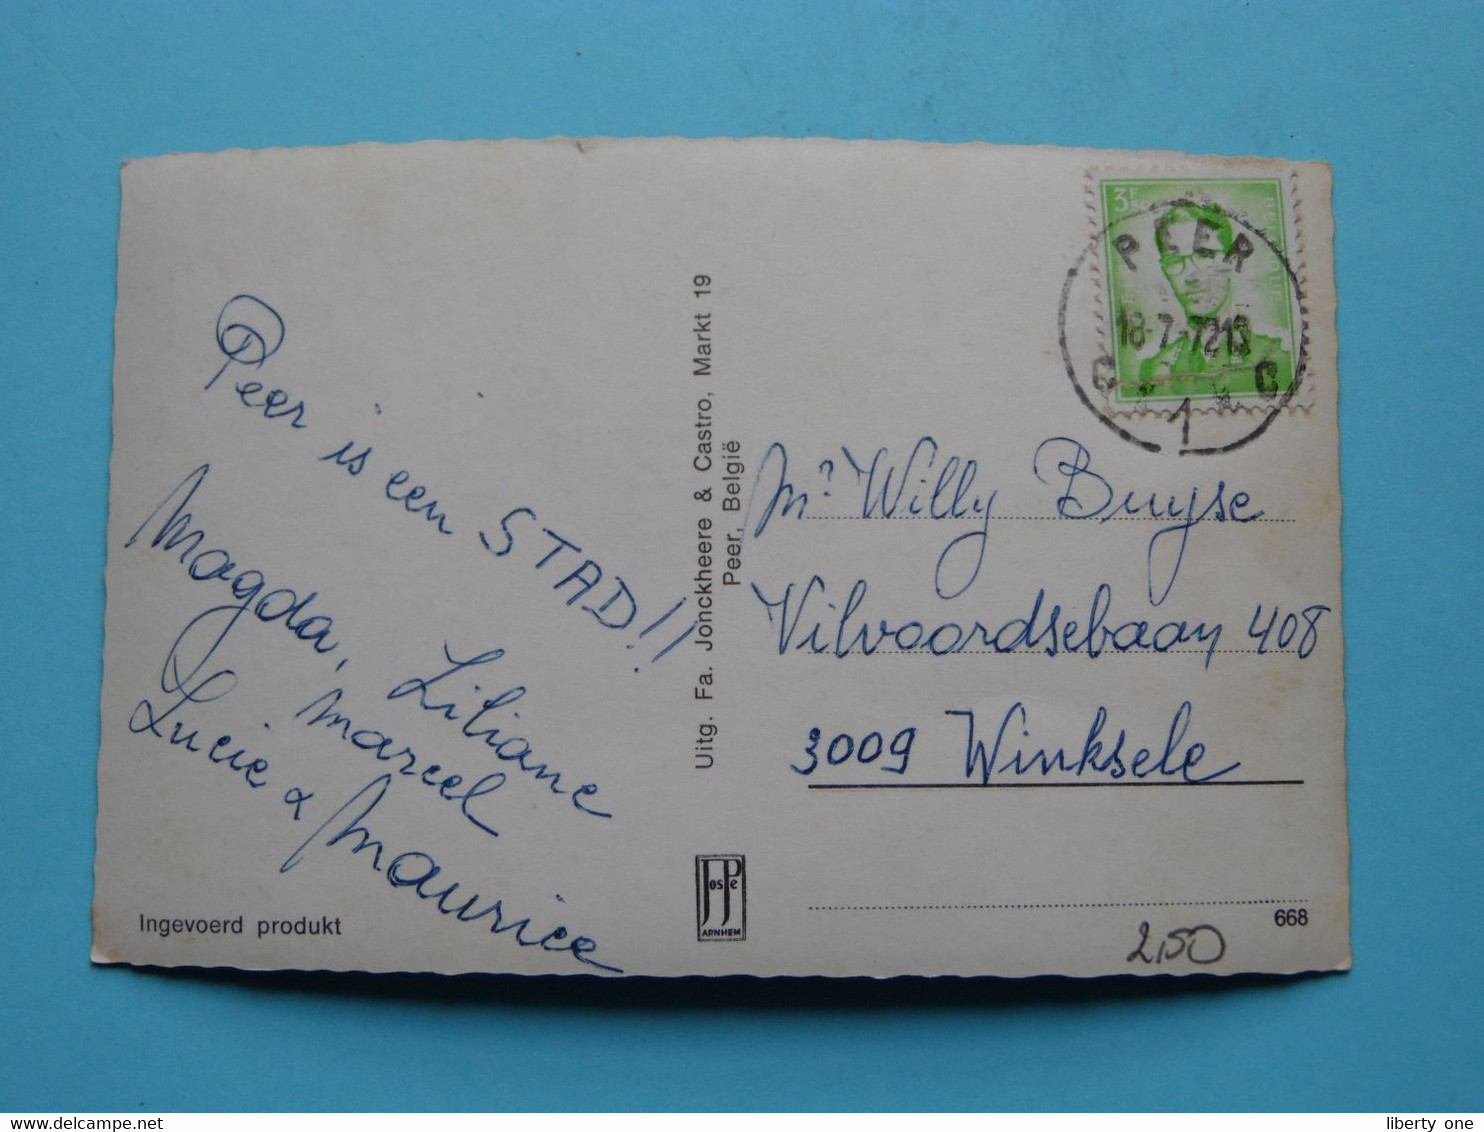 Peer is een STAD!!
Magda, Liliane
Marcel
Lucie & Maurice
Ingevoerd produkt
Uitg. Fa. Jonckheere & Castro, Markt 19
Peer, België
JosPe
ARNHEM
3F50
PEER
18-7-72 18
C C
1
Mr Willy Buyse
Vilvoordsebaan 408
3009 Winksele
668
2,50
www.delcampe.net
liberty one